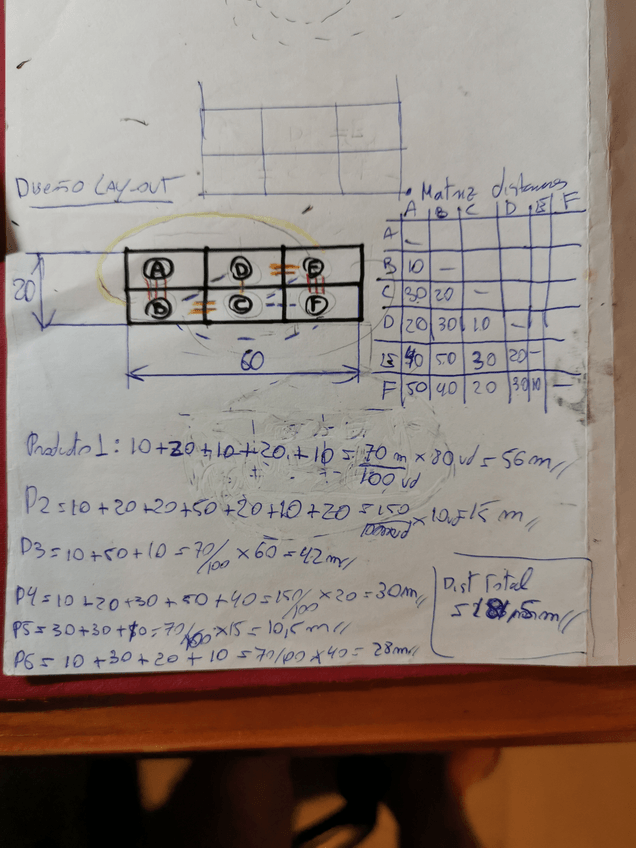 DISEÑO LAY-OUT
Matriz distancias
A B C D E F
A -
B 10 -
C 30 20 -
D 20 30 10 -
E 40 50 30 20 -
F 50 40 20 30 10 -
20
A D E
B C F
60
Producto 1: 10+20+10+20+10 = 70 m/100 ud × 80 ud = 56 m//
P2 = 10+20+20+50+20+10+20 = 150/ × 10 = 15 m//
P3 = 10+50+10 = 70/100 × 60 = 42 m//
P4 = 10+20+30+50+40 = 150/100 × 20 = 30 m//
P5 = 30+30+10 = 70/100 × 15 = 10,5 m//
P6 = 10+30+20+10 = 70/100 × 40 = 28 m//
Dist Total